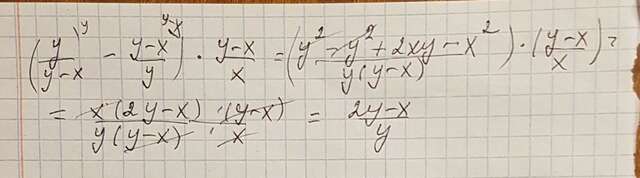 (y/(y-x)^y - (y-x)/y^(y-x)) · (y-x)/x = ((y² - y² + 2xy - x²)/(y(y-x))) · ((y-x)/x) =
= (x(2y-x) · (y-x))/(y(y-x) · x) = (2y-x)/y